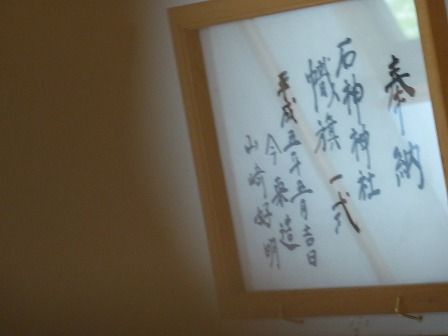 奉納
石神神社
幟旗一式
平成五年五月吉日
今東造
山崎好明